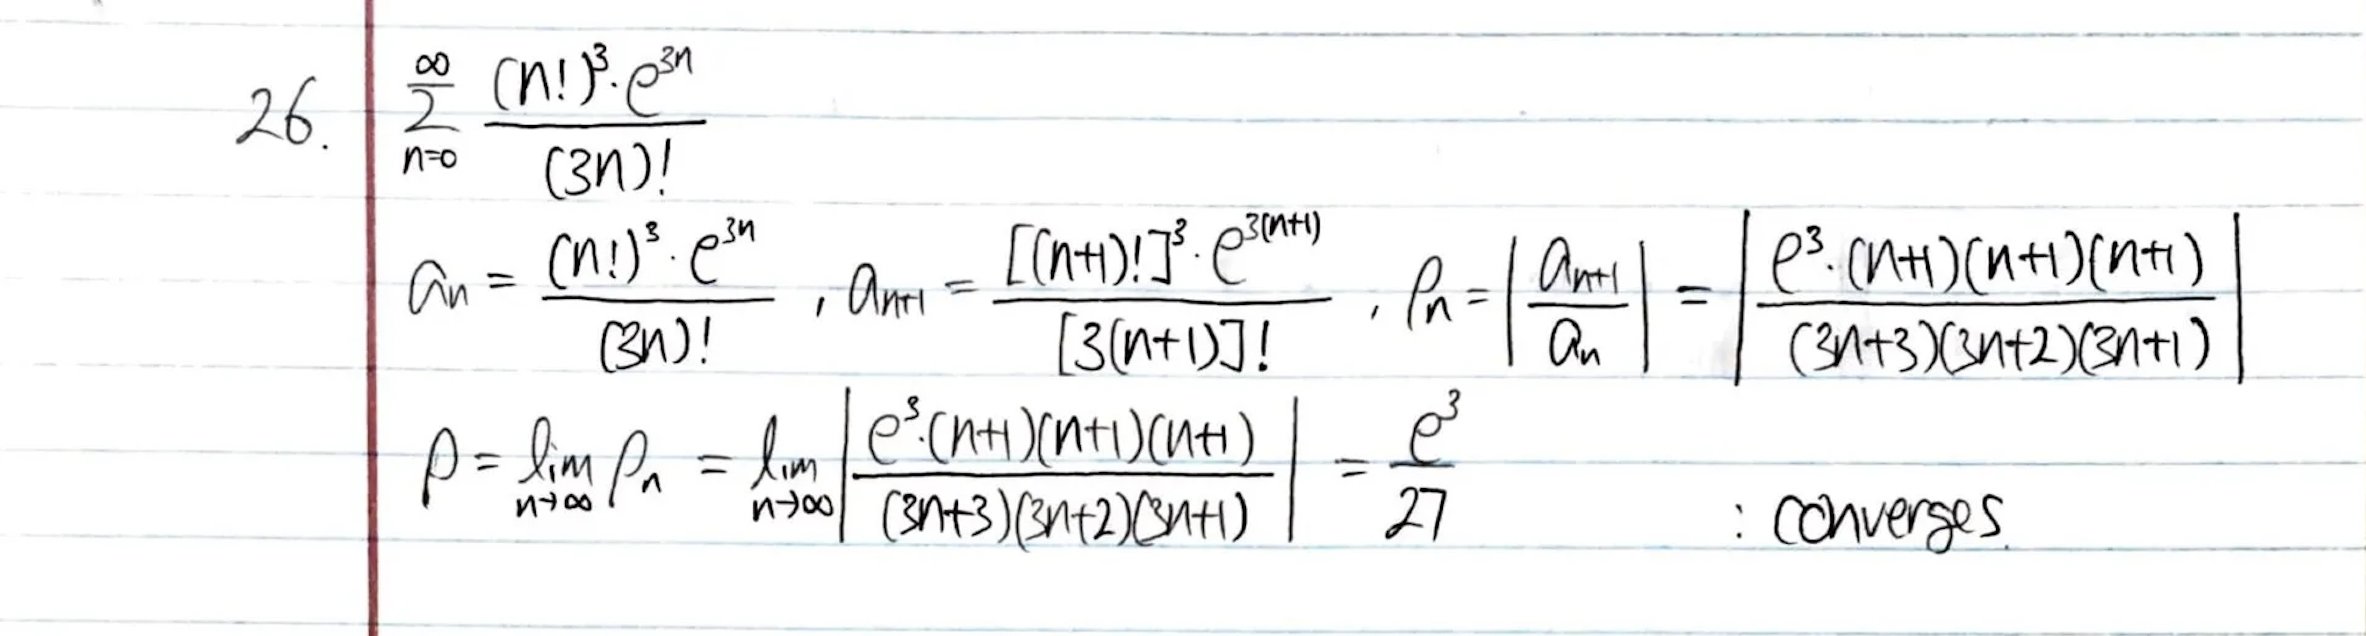 26. $\sum_{n=0}^{\infty} \frac{(n!)^3 \cdot e^{3n}}{(3n)!}$
$a_n = \frac{(n!)^3 \cdot e^{3n}}{(3n)!}$ , $a_{n+1} = \frac{[(n+1)!]^3 \cdot e^{3(n+1)}}{[3(n+1)]!}$ , $\rho_n = \left| \frac{a_{n+1}}{a_n} \right| = \left| \frac{e^3 \cdot (n+1)(n+1)(n+1)}{(3n+3)(3n+2)(3n+1)} \right|$
$\rho = \lim_{n \to \infty} \rho_n = \lim_{n \to \infty} \left| \frac{e^3 \cdot (n+1)(n+1)(n+1)}{(3n+3)(3n+2)(3n+1)} \right| = \frac{e^3}{27}$ : converges.